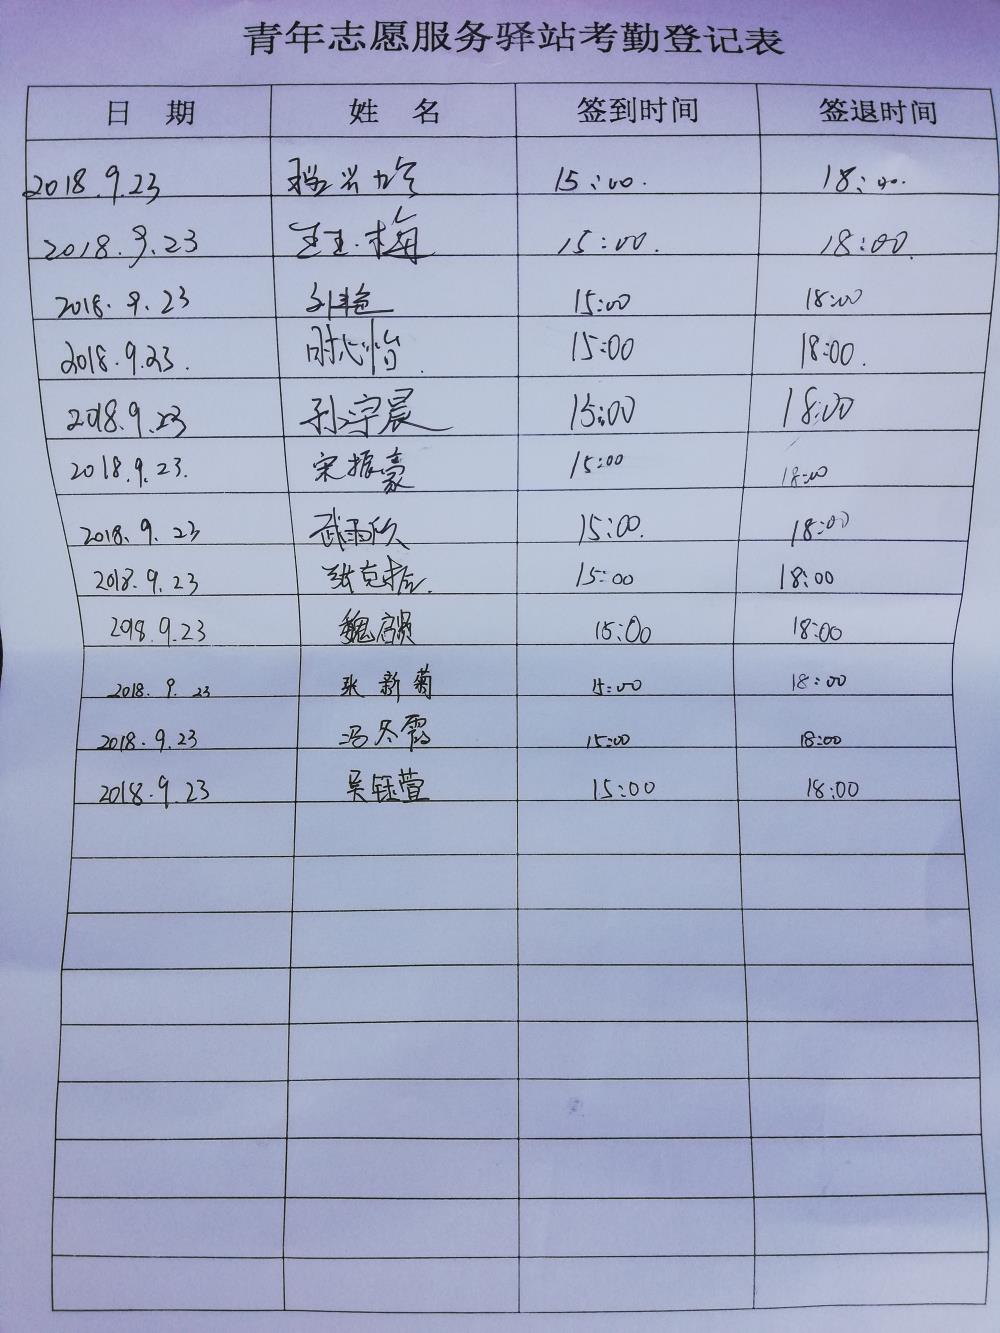 青年志愿服务驿站考勤登记表
日 期 姓 名 签到时间 签退时间
2018.9.23 15:00. 18:00.
2018.9.23 王玉梅 15:00. 18:00.
2018.9.23 刘艳 15:00 18:00
2018.9.23. 时心怡. 15:00 18:00.
2018.9.23 孙宇晨 15:00 18:00
2018.9.23. 宋振豪 15:00 18:00
2018.9.23 武雨欣 15:00. 18:00
2018.9.23 张克 15:00 18:00
2018.9.23 魏 15:00 18:00
2018.9.23 张新菊 15:00 18:00
2018.9.23 冯冬霞 15:00 18:00
2018.9.23 吴钰萱 15:00 18:00